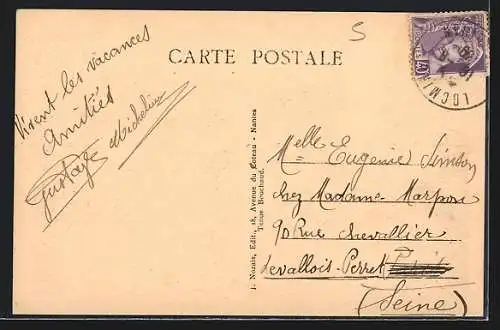 5
CARTE POSTALE
Vivent les vacances
Amitiés
Gustave Micheline
LOCMA
J. Nozais, Edit., 18, Avenue du Coteau - Nantes
Tenue Bouchaud.
Melle Eugénie
chez Madame Marpon
90 Rue Chevallier
Levallois-Perret
(Seine)